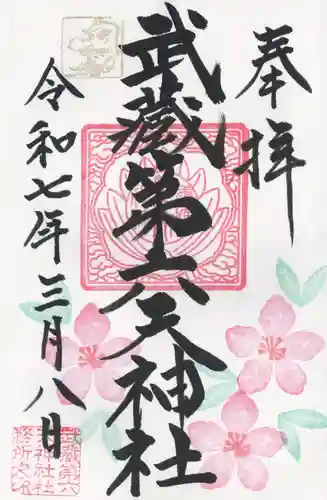 奉拝
武蔵第六天神社
令和七年三月八日
武蔵第六
天神社社
務所之印